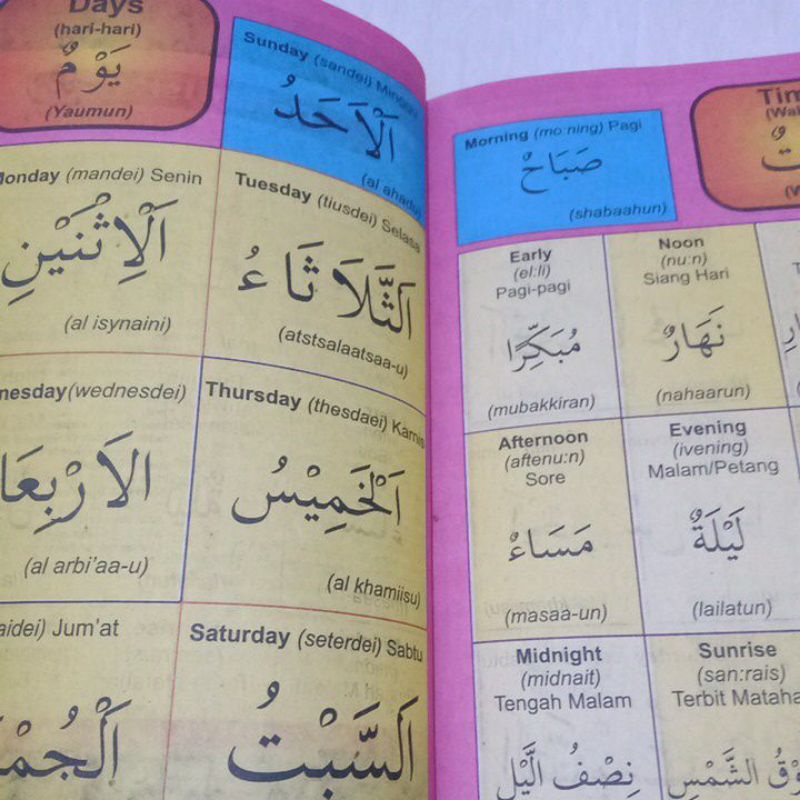 Days
(hari-hari)
يَوْمٌ
(Yaumun)
Sunday (sandei) Minggu
اَلْاَحَدُ
(al ahadu)
Monday (mandei) Senin
اَلْاِثْنَيْنِ
(al isynaini)
Tuesday (tiusdei) Selasa
اَلثَّلَاثَاءُ
(atstsalaatsaa-u)
(wednesdei)
(al arbi'aa-u)
Thursday (thesdaei) Kamis
اَلْخَمِيْسُ
(al khamiisu)
Jum'at
Saturday (seterdei) Sabtu
اَلسَّبْتُ
Morning (mo ning) Pagi
صَبَاحٌ
(shabaahun)
Early
(el:li)
Pagi-pagi
مُبَكِّرًا
(mubakkiran)
Noon
(nu:n)
Siang Hari
نَهَارٌ
(nahaarun)
Afternoon
(aftenu:n)
Sore
مَسَاءٌ
(masaa-un)
Evening
(ivening)
Malam/Petang
لَيْلَةٌ
(lailatun)
Midnight
(midnait)
Tengah Malam
نِصْفُ الَّيْلِ
Sunrise
(san:rais)
Terbit
الشَّمْسِ